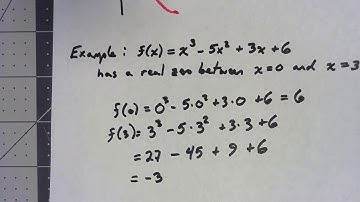 Example: f(x) = x³ - 5x² + 3x + 6
has a real zero between x=0 and x=3
f(0) = 0³ - 5·0² + 3·0 + 6 = 6
f(3) = 3³ - 5·3² + 3·3 + 6
= 27 - 45 + 9 + 6
= -3